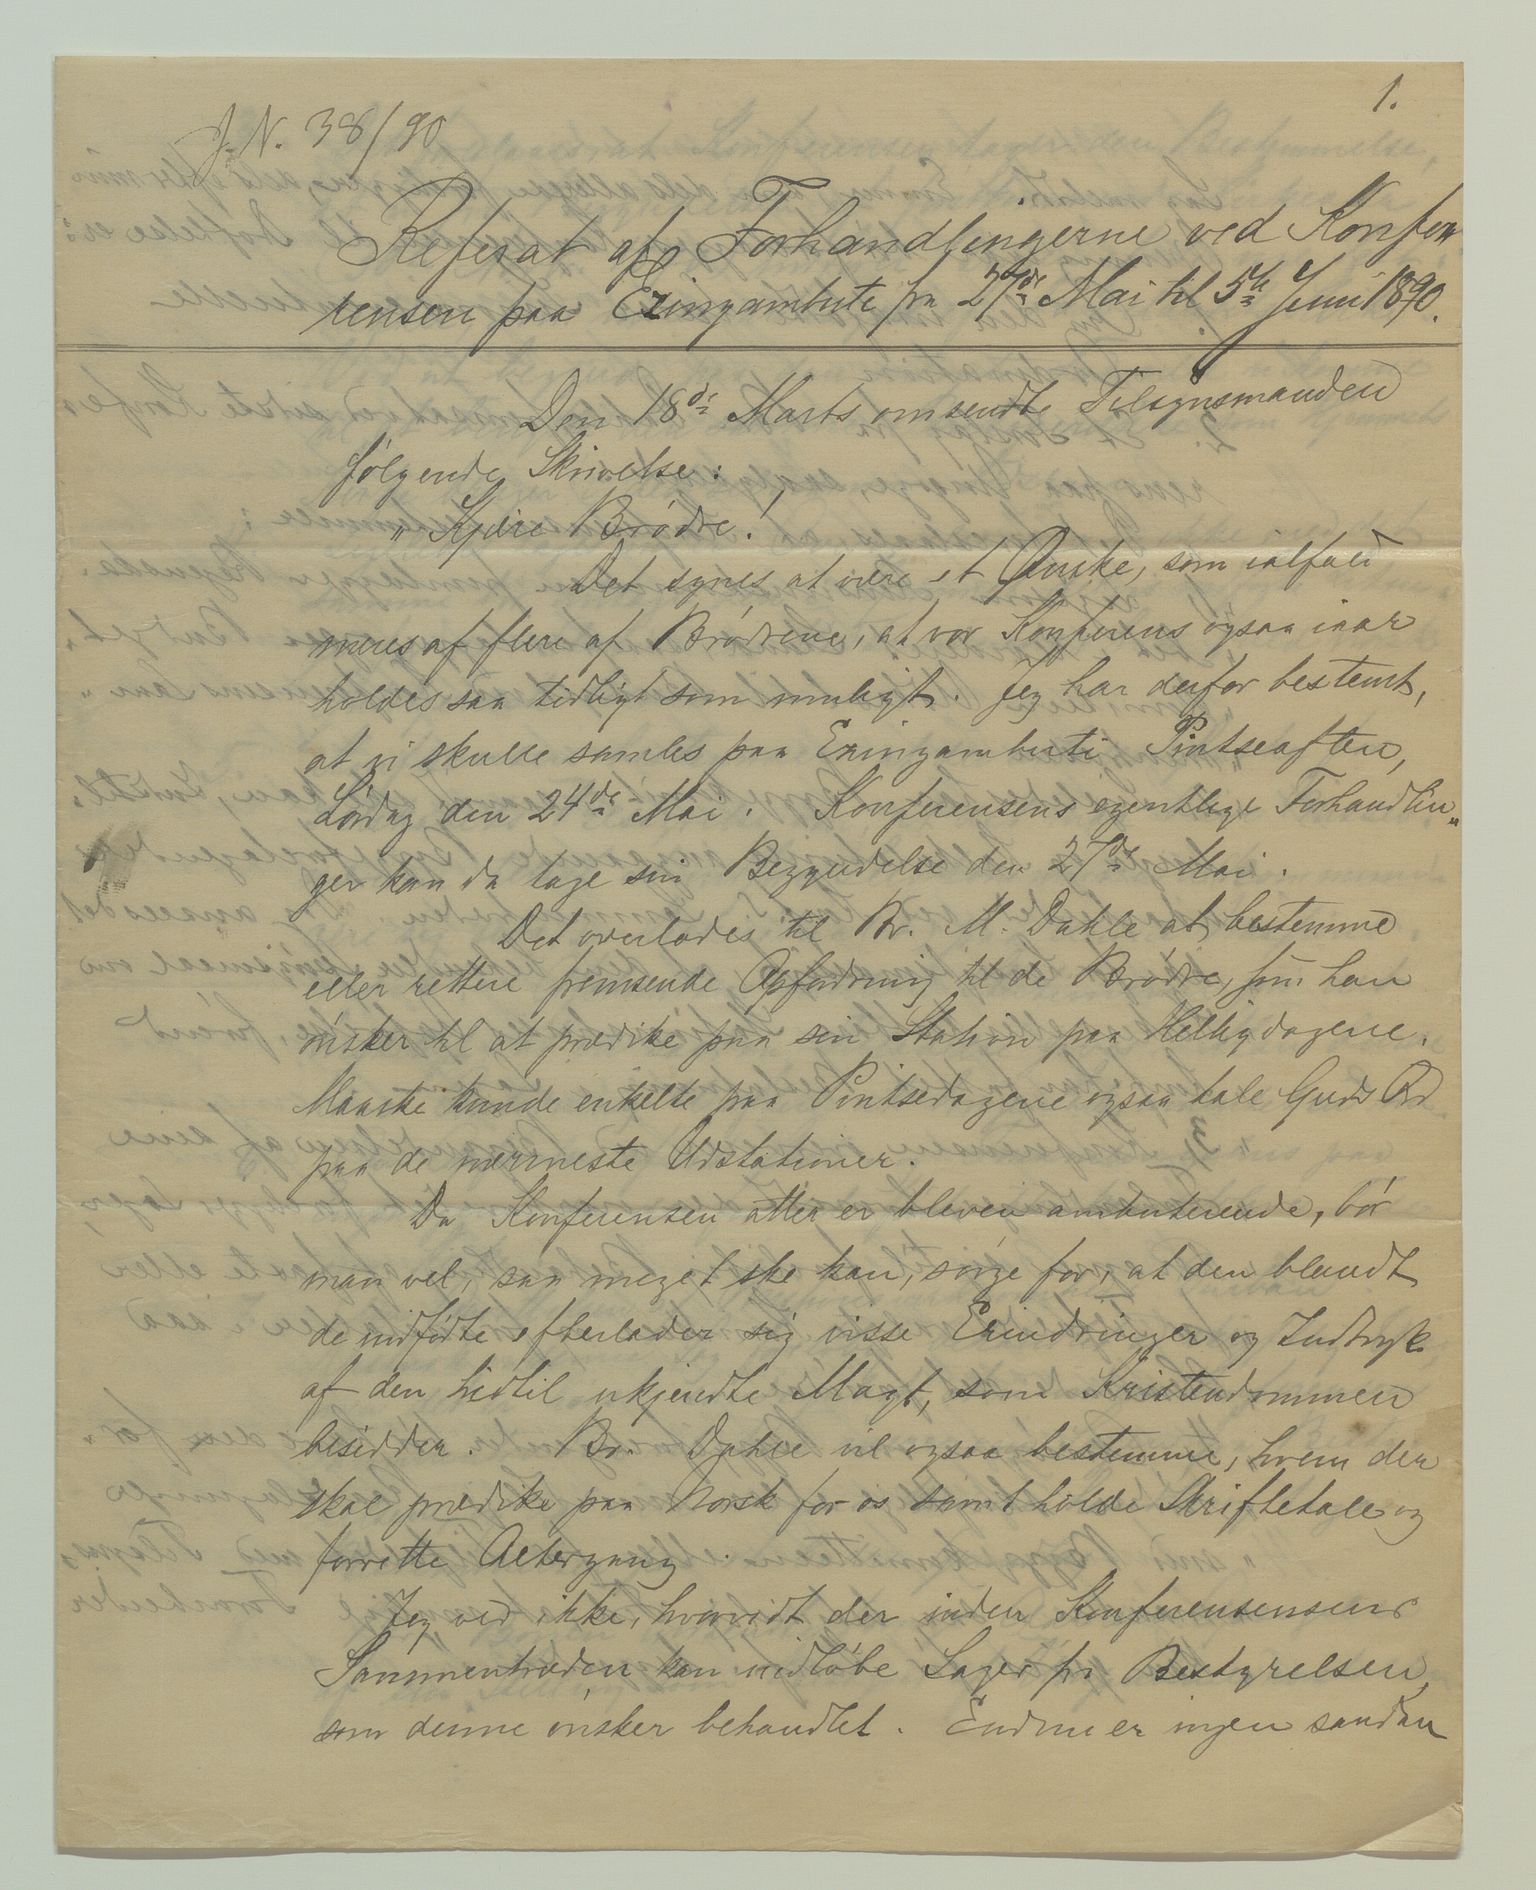 1.
J.N. 38/90
Referat af Forhandlingerne ved Konfe-
rensen paa Ezingambuti fra 27de Mai til 5te Juni 1890.
Den 18de Marts omsendte Tilsynsmanden
følgende Skrivelse:
"Kjære Brødre!
Det synes at være et Ønske, som ialfald
næres af flere af Brødrene, at vor Konferens ogsaa iaar
holdes saa tidligt som muligt. Jeg har derfor bestemt,
at vi skulle samles paa Ezingambuti Pintseaften,
Lørdag den 24de Mai. Konferensens egentlige Forhandlin-
ger kan da tage sin Begyndelse den 27de Mai.
Det overlades til Br. M. Dahle at bestemme
eller rettere fremsende Opfordring til de Brødre, som han
ønsker til at prædike paa sin Station paa Helligdagene.
Maaske kunde enkelte paa Pintsedagene ogsaa tale Guds Ord
paa de nærmeste Udstationer.
Da Konferensen atter er bleven ambuterende, bør
man vel, saa meget ske kan, sørge for, at den blandt
de indfødte efterlader sig visse Erindringer og Indtryk
af den hidtil ukjendte Magt, som Kristendommen
besidder. Br. Dahle vil ogsaa bestemme, hvem der
skal prædike paa Norsk for os samt holde Skriftetale og
forrette Altergang.
Jeg ved ikke, hvorvidt der inden Konferensensens
Sammentræden kan indløbe Sager fra Bestyrelsen,
som denne ønsker behandlet. Endnu er ingen saadan